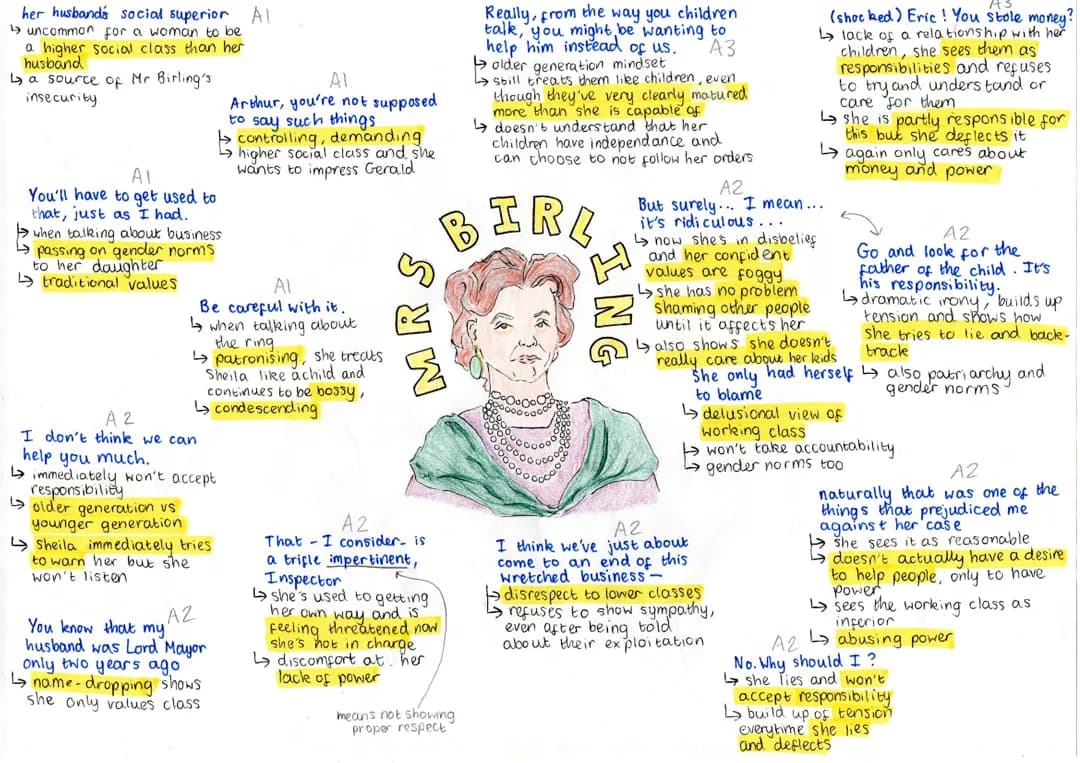 her husband's social superior A1
↳ uncommon for a woman to be
a higher social class than her
husband
↳ a source of Mr Birling's
insecurity
A1
Arthur, you're not supposed
to say such things
↳ controlling, demanding
↳ higher social class and she
wants to impress Gerald
Really, from the way you children
talk, you might be wanting to
help him instead of us. A3
↳ older generation mindset
↳ still treats them like children, even
though they've very clearly matured
more than she is capable of
↳ doesn't understand that her
children have independance and
can choose to not follow her orders
A3
(shocked) Eric! You stole money?
↳ lack of a relationship with her
children, she sees them as
responsibilities and refuses
to try and understand or
care for them
↳ she is partly responsible for
this but she deflects it
↳ again only cares about
money and power
A1
You'll have to get used to
that, just as I had.
↳ when talking about business
↳ passing on gender norms
to her daughter
↳ traditional values
A1
Be careful with it.
↳ when talking about
the ring
↳ patronising, she treats
Sheila like a child and
continues to be bossy,
↳ condescending
MRS BIRLING
A2
But surely... I mean...
it's ridiculous...
↳ now she's in disbelief
and her confident
values are foggy
↳ she has no problem
shaming other people
until it affects her
↳ also shows she doesn't
really care about her kids
She only had herself
to blame
↳ delusional view of
working class
↳ won't take accountability
↳ gender norms too
A2
Go and look for the
father of the child. It's
his responsibility.
↳ dramatic irony, builds up
tension and shows how
she tries to lie and back-
track
↳ also patriarchy and
gender norms
A2
I don't think we can
help you much.
↳ immediately won't accept
responsibility
↳ older generation vs
younger generation
↳ Sheila immediately tries
to warn her but she
won't listen
A2
You know that my
husband was Lord Mayor
only two years ago
↳ name-dropping shows
she only values class
A2
That – I consider – is
a trifle impertinent,
Inspector
↳ she's used to getting
her own way and is
feeling threatened now
she's not in charge
↳ discomfort at her
lack of power
means not showing
proper respect
A2
I think we've just about
come to an end of this
wretched business –
↳ disrespect to lower classes
↳ refuses to show sympathy,
even after being told
about their exploitation
A2
naturally that was one of the
things that prejudiced me
against her case
↳ she sees it as reasonable
↳ doesn't actually have a desire
to help people, only to have
power
↳ sees the working class as
inferior
↳ abusing power
A2
No. Why should I?
↳ she lies and won't
accept responsibility
↳ build up of tension
everytime she lies
and deflects